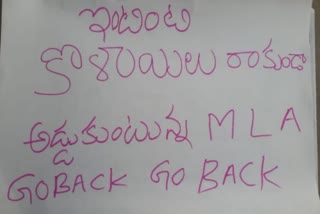 ఇంటింటి
కొళాయిలు రాకుండా
అడ్డుకుంటున్న MLA
GOBACK GO BACK